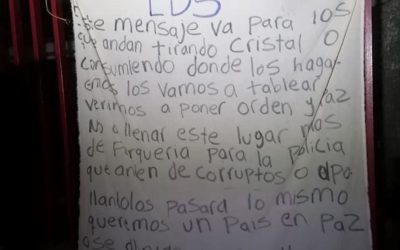 LDS
este mensaje va para los
que andan tirando cristal o
consumiendo donde los haga
emos los vamos a tablear
verimos a poner orden y paz
No a llenar este lugar mas
de Firqueria para la policia
que anden de corruptos o apo
llantolos pasara lo mismo
queremos un Pais en Paz